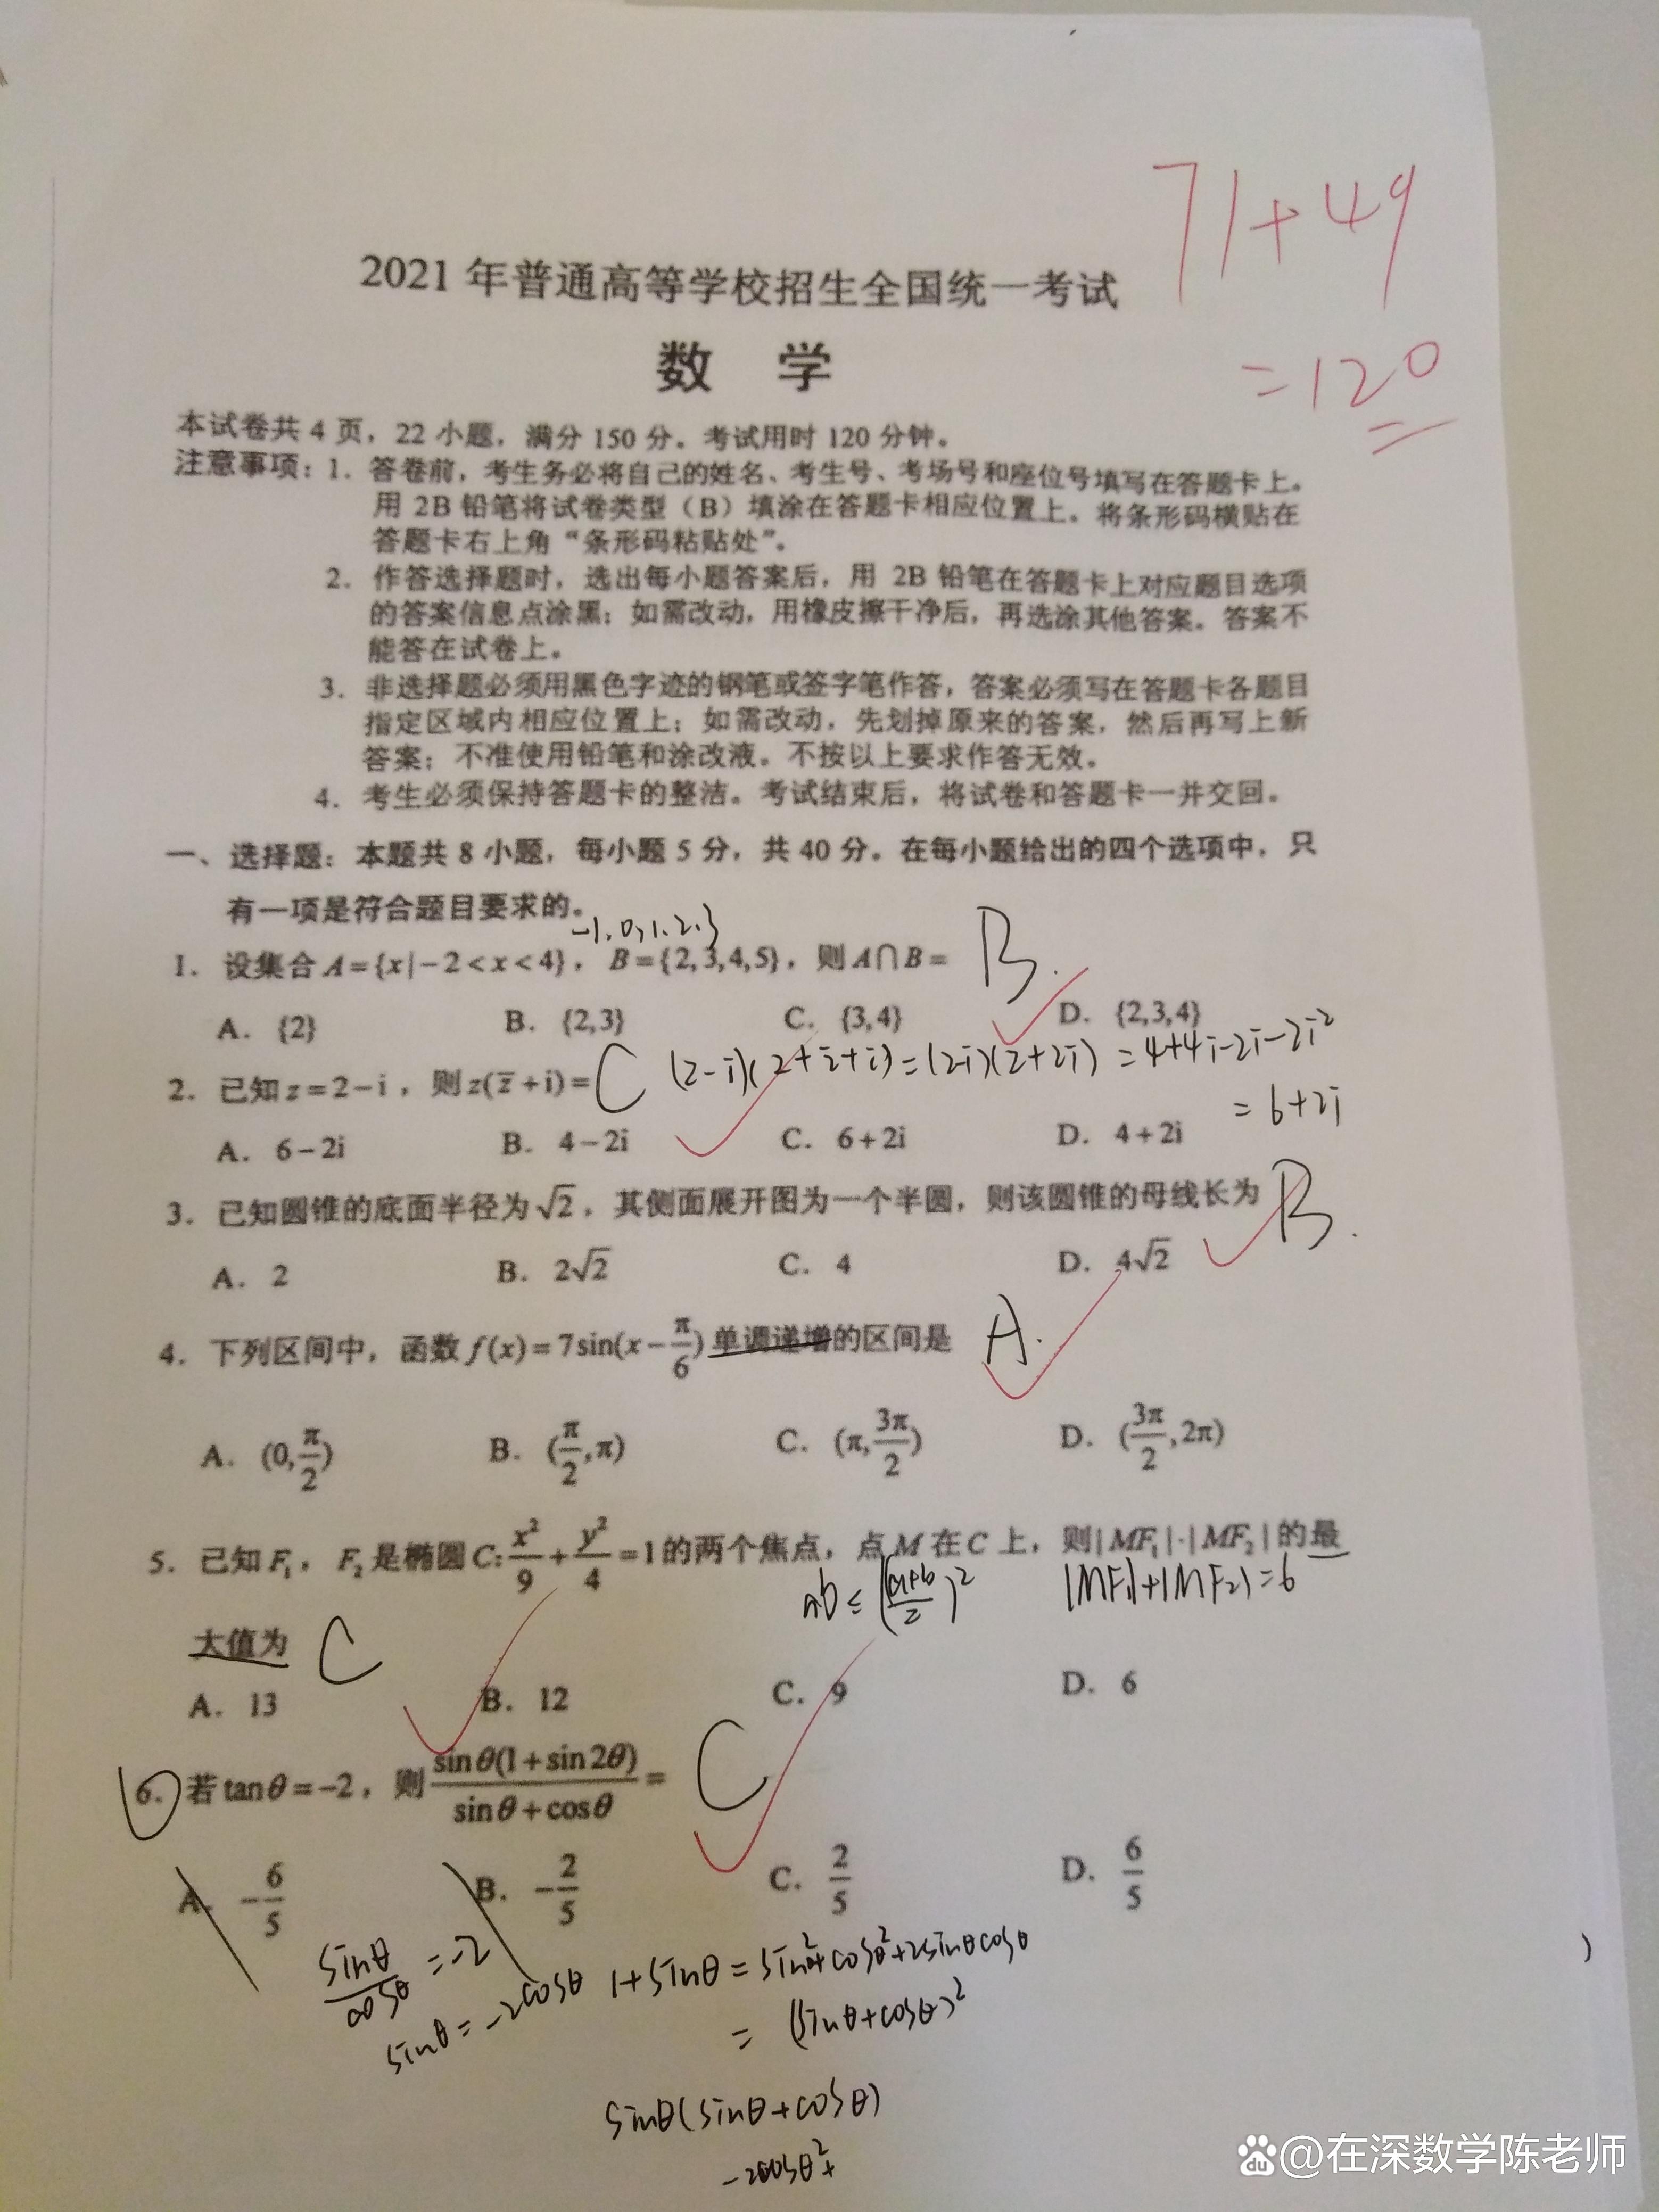 71+49
=120
2021年普通高等学校招生全国统一考试
数 学
本试卷共4页，22小题，满分150分。考试用时120分钟。
注意事项：1．答卷前，考生务必将自己的姓名、考生号、考场号和座位号填写在答题卡上。
用2B铅笔将试卷类型（B）填涂在答题卡相应位置上。将条形码横贴在
答题卡右上角“条形码粘贴处”。
2．作答选择题时，选出每小题答案后，用2B铅笔在答题卡上对应题目选项
的答案信息点涂黑；如需改动，用橡皮擦干净后，再选涂其他答案。答案不
能答在试卷上。
3．非选择题必须用黑色字迹的钢笔或签字笔作答，答案必须写在答题卡各题目
指定区域内相应位置上；如需改动，先划掉原来的答案，然后再写上新
答案；不准使用铅笔和涂改液。不按以上要求作答无效。
4．考生必须保持答题卡的整洁。考试结束后，将试卷和答题卡一并交回。
一、选择题：本题共8小题，每小题5分，共40分。在每小题给出的四个选项中，只
有一项是符合题目要求的。
-1.0,1.2.3
1．设集合A={x|-2<x<4}，B={2,3,4,5}，则A∩B= B.
A．{2} B．{2,3} C．{3,4} D．{2,3,4}
2．已知z=2-i，则z(z̅+i)= C (2-i)(2+i+i)=(2-i)(2+2i)=4+4i-2i-2i²
=6+2i
A．6-2i B．4-2i C．6+2i D．4+2i
3．已知圆锥的底面半径为√2，其侧面展开图为一个半圆，则该圆锥的母线长为 B.
A．2 B．2√2 C．4 D．4√2
4．下列区间中，函数f(x)=7sin(x-π/6)单调递增的区间是 A.
A．(0,π/2) B．(π/2,π) C．(π,3π/2) D．(3π/2,2π)
5．已知F₁，F₂是椭圆C:x²/9+y²/4=1的两个焦点，点M在C上，则|MF₁|·|MF₂|的最
ab≤((a+b)/2)² |MF₁|+|MF₂|=6
大值为 C
A．13 B．12 C．9 D．6
6．若tanθ=-2，则sinθ(1+sin2θ)/(sinθ+cosθ)= C
A．-6/5 B．-2/5 C．2/5 D．6/5
sinθ/cosθ=-2
sinθ=-2cosθ 1+sinθ=sin²θ+cosθ²+2sinθcosθ
=(sinθ+cosθ)²
sinθ(sinθ+cosθ)
@在深数学陈老师